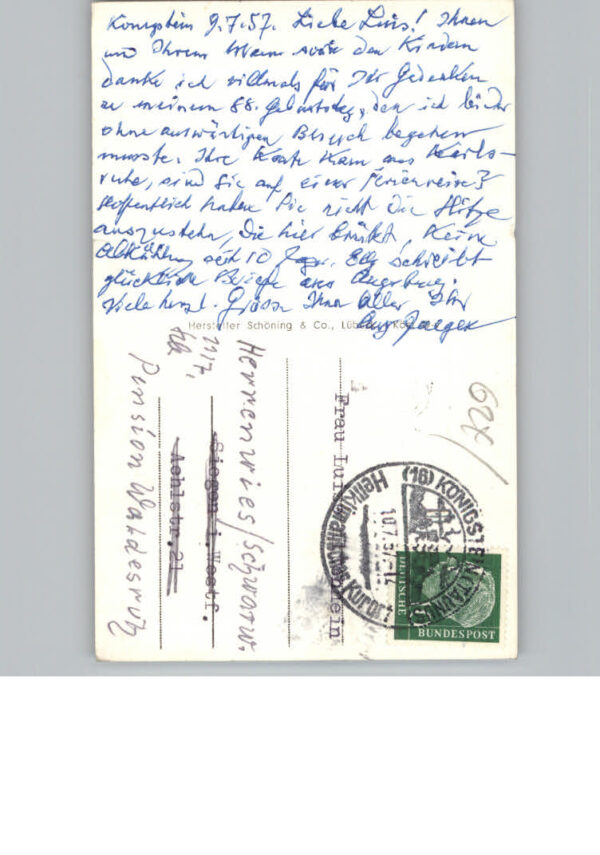 Königstein 9.7.57. Liebe Luis! Ihnen
und Ihrem Mann sowie den Kindern
danke ich vielmals für Ihr Gedenken
zu meinem 88. Geburtstag, den ich leider
ohne auswärtigen Besuch begehen
musste. Ihre Karte kam aus Karls-
ruhe, sind Sie auf einer Ferienreise?
Hoffentlich haben Sie nicht die Hitze
auszustehen, die hier brütet. Keine
Abkühlung seit 10 Tagen. schreibt
glückliche Briefe aus Augsburg.
Viele herzl. Grüsse Ihnen Allen Ihr
Jaeger
Hersteller Schöning & Co., Lübeck
Frau
Siegen i. Westf.
21
Herrenwies/Schwarzw.
Pension Waldesruh
(16) KÖNIGSTEIN (TAUNUS)
10.7.57
Heilklimatischer Kurort
DEUTSCHE
BUNDESPOST